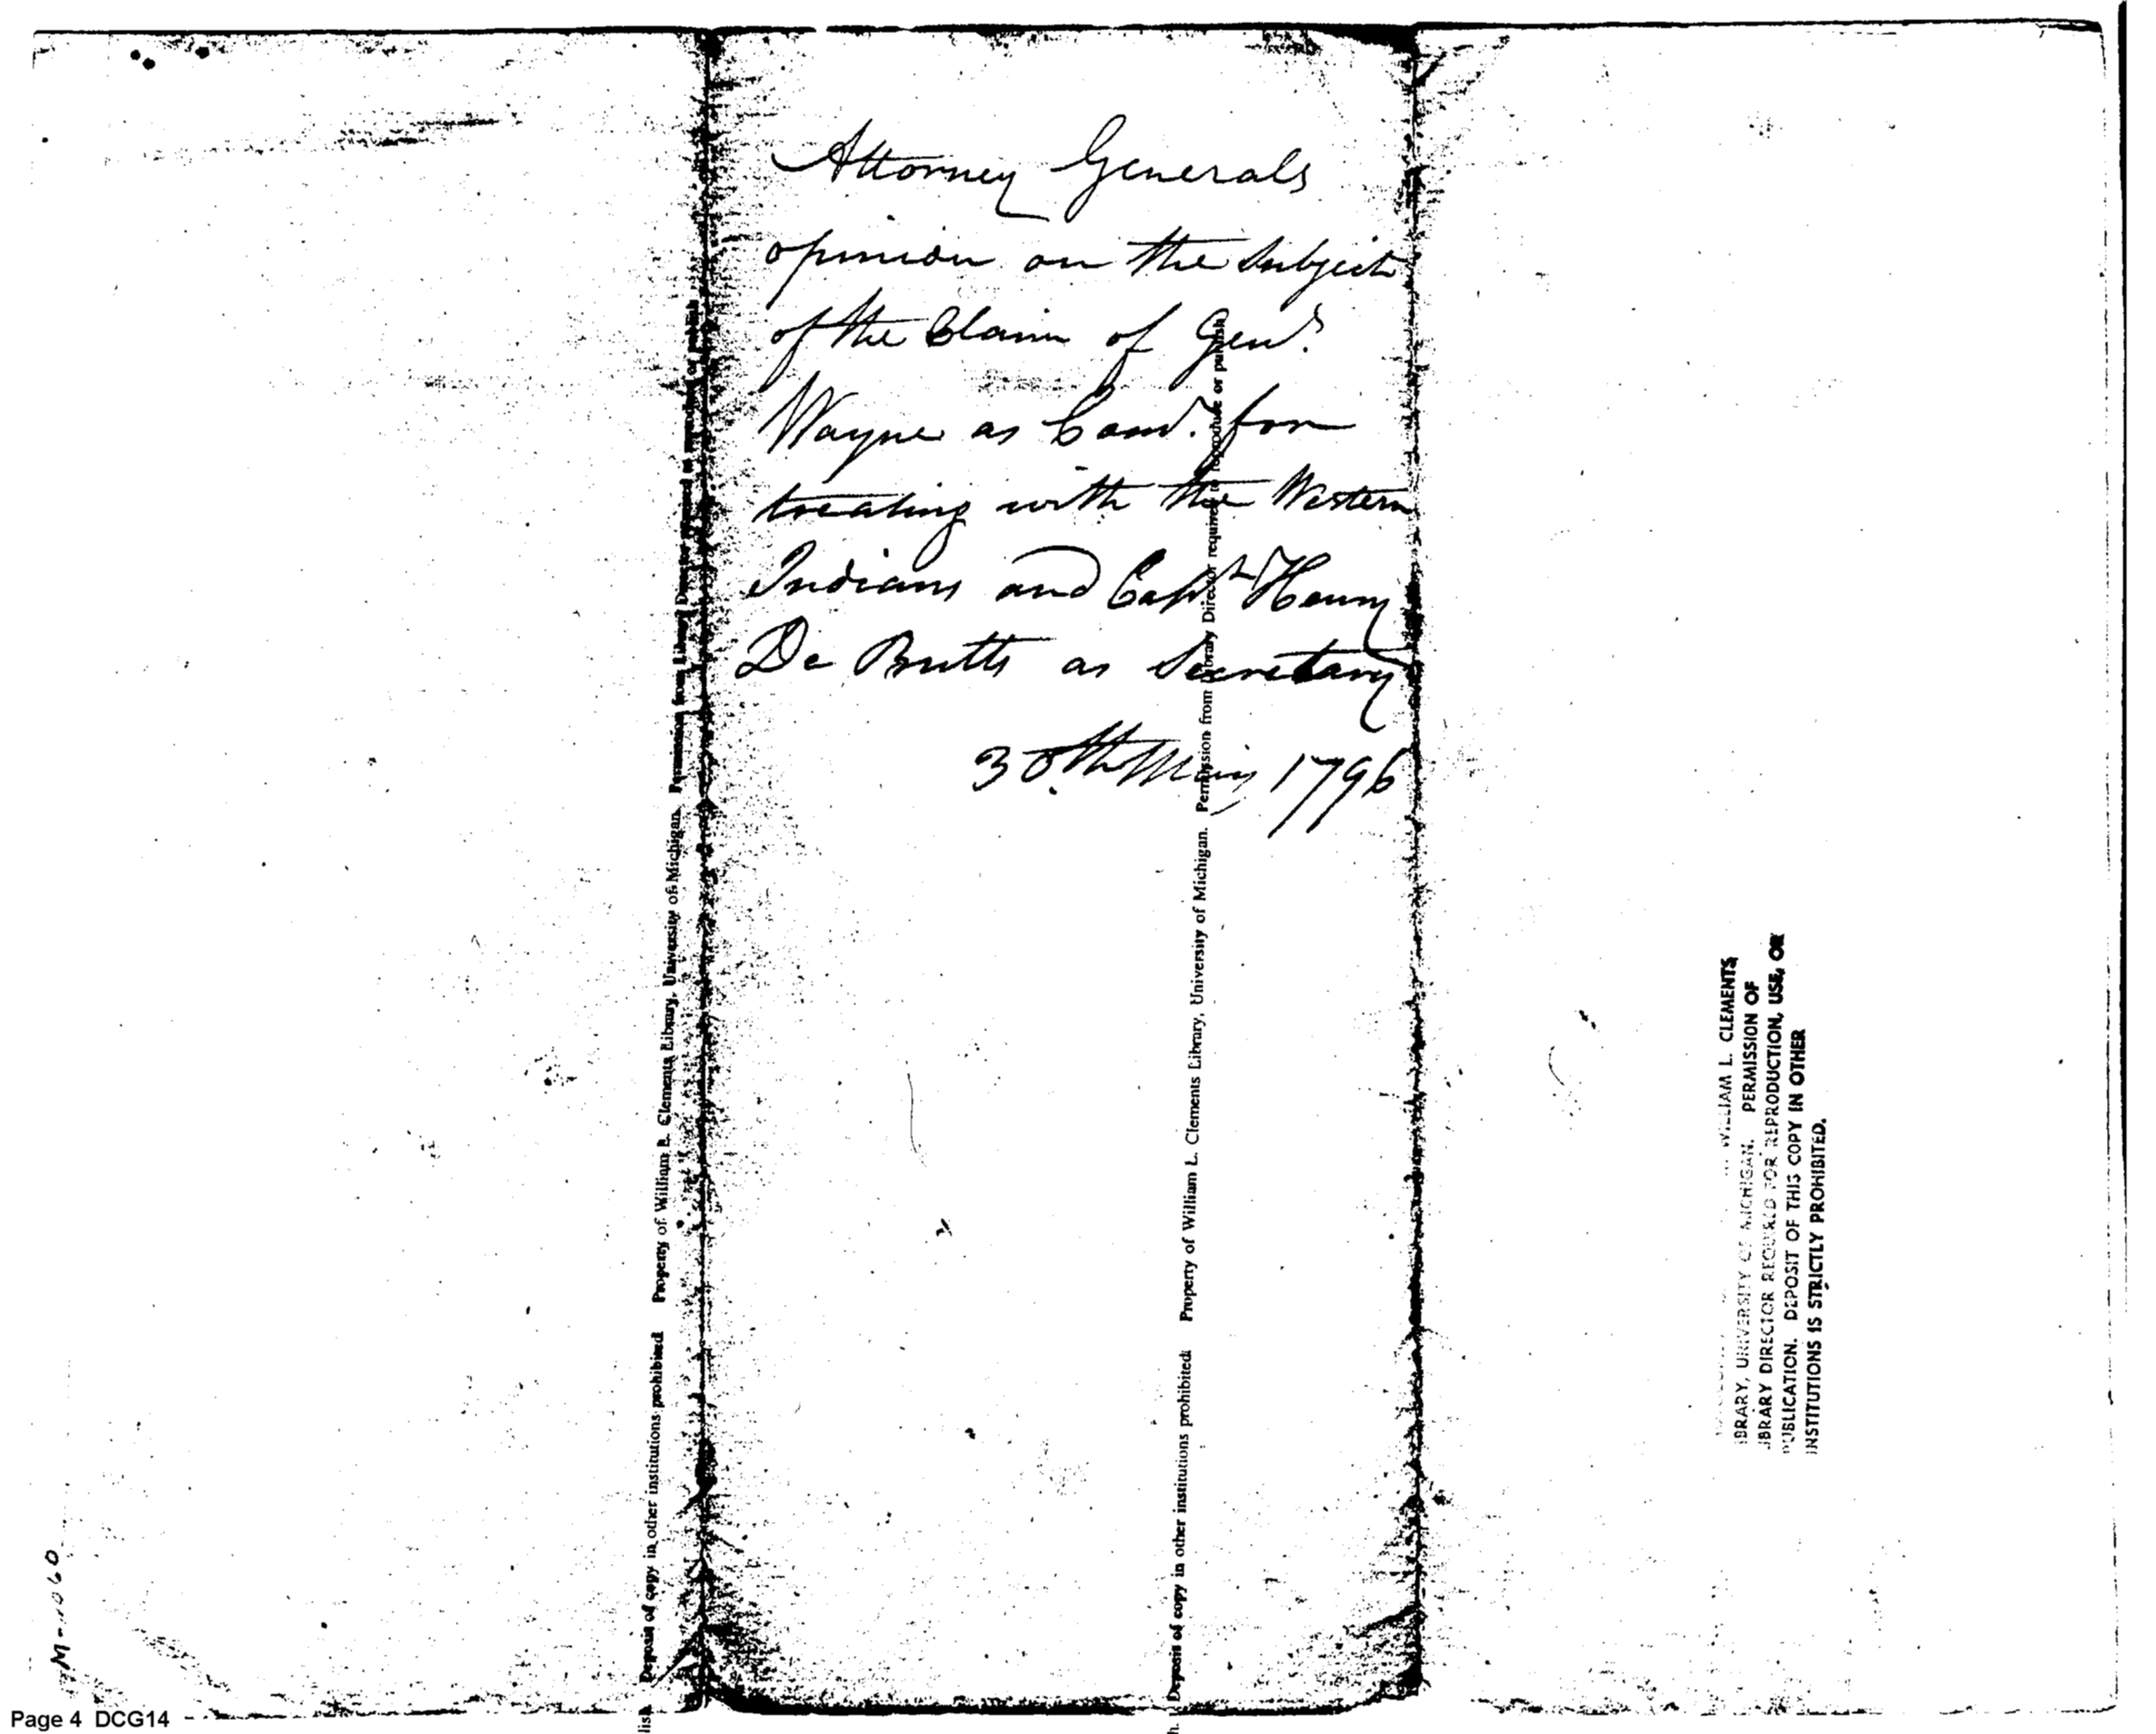 Attorney Generals
opinion on the Subject
of the Claim of Genl.
Wayne as Comr. for
treating with the Western
Indians and Capt. Henry
De Butts as Secretary
30th May 1796
lish. Deposit of copy in other institutions prohibited Property of William L. Clements Library, University of Michigan. Permission from Library Director required to reproduce or publish
h. Deposit of copy in other institutions prohibited Property of William L. Clements Library, University of Michigan. Permission from Library Director required to reproduce or publish
WILLIAM L. CLEMENTS
IBRARY, UNIVERSITY OF MICHIGAN. PERMISSION OF
IBRARY DIRECTOR REQUIRED FOR REPRODUCTION, USE, OR
PUBLICATION. DEPOSIT OF THIS COPY IN OTHER
INSTITUTIONS IS STRICTLY PROHIBITED.
M-1060
Page 4 DCG14